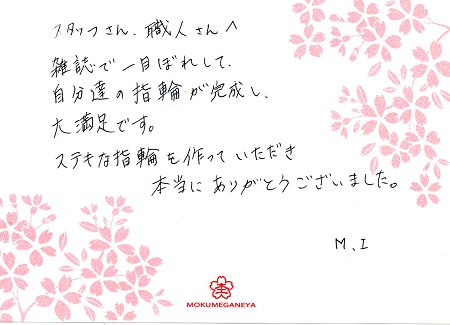 スタッフさん、職人さんへ
雑誌で一目ぼれして、
自分達の指輪が完成し、
大満足です。
ステキな指輪を作っていただき
本当にありがとうございました。
M、I
MOKUMEGANEYA